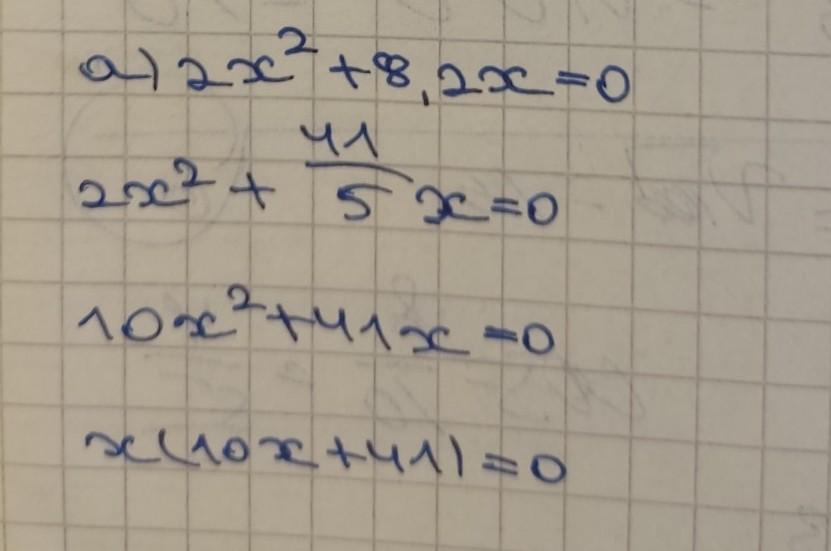 a) 2x² + 8,2x = 0
2x² + 41/5 x = 0
10x² + 41x = 0
x(10x + 41) = 0